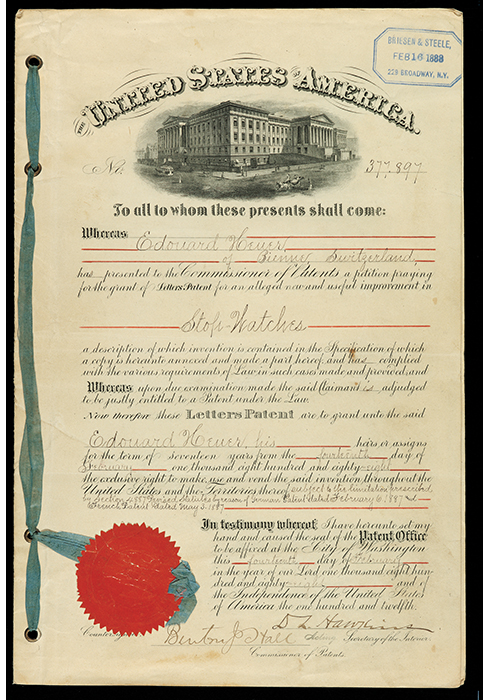 BRIESEN & STEELE,
FEB 16 1888
229 BROADWAY, N.Y.
THE UNITED STATES OF AMERICA.
No. 377,897
To all to whom these presents shall come:
Whereas Edouard Heuer
of Bienne, Switzerland,
has presented to the Commissioner of Patents a petition praying
for the grant of Letters Patent for an alleged new and useful improvement in
Stop-Watches
a description of which invention is contained in the Specification of which
a copy is hereunto annexed and made a part hereof, and has complied
with the various requirements of Law in such cases made and provided, and
Whereas upon due examination made the said Claimant is adjudged
to be justly entitled to a Patent under the Law.
Now therefore these Letters Patent are to grant unto the said
Edouard Heuer, his heirs or assigns
for the term of seventeen years from the fourteenth day of
February one thousand eight hundred and eighty-eight
the exclusive right to make, use and vend the said invention throughout the
United States and the Territories thereof subject to the limitation prescribed
by Section 4887 Revised Statutes by reason of German Patent dated February 6, 1887 and
French Patent dated May 3, 1887.
In testimony whereof I have hereunto set my
hand and caused the seal of the Patent Office
to be affixed at the City of Washington
this fourteenth day of February
in the year of our Lord one thousand eight hun-
dred and eighty-eight and of
the Independence of the United States
of America the one hundred and twelfth.
D. L. Hawkins
Acting Secretary of the Interior.
Benton J. Hall
Commissioner of Patents.